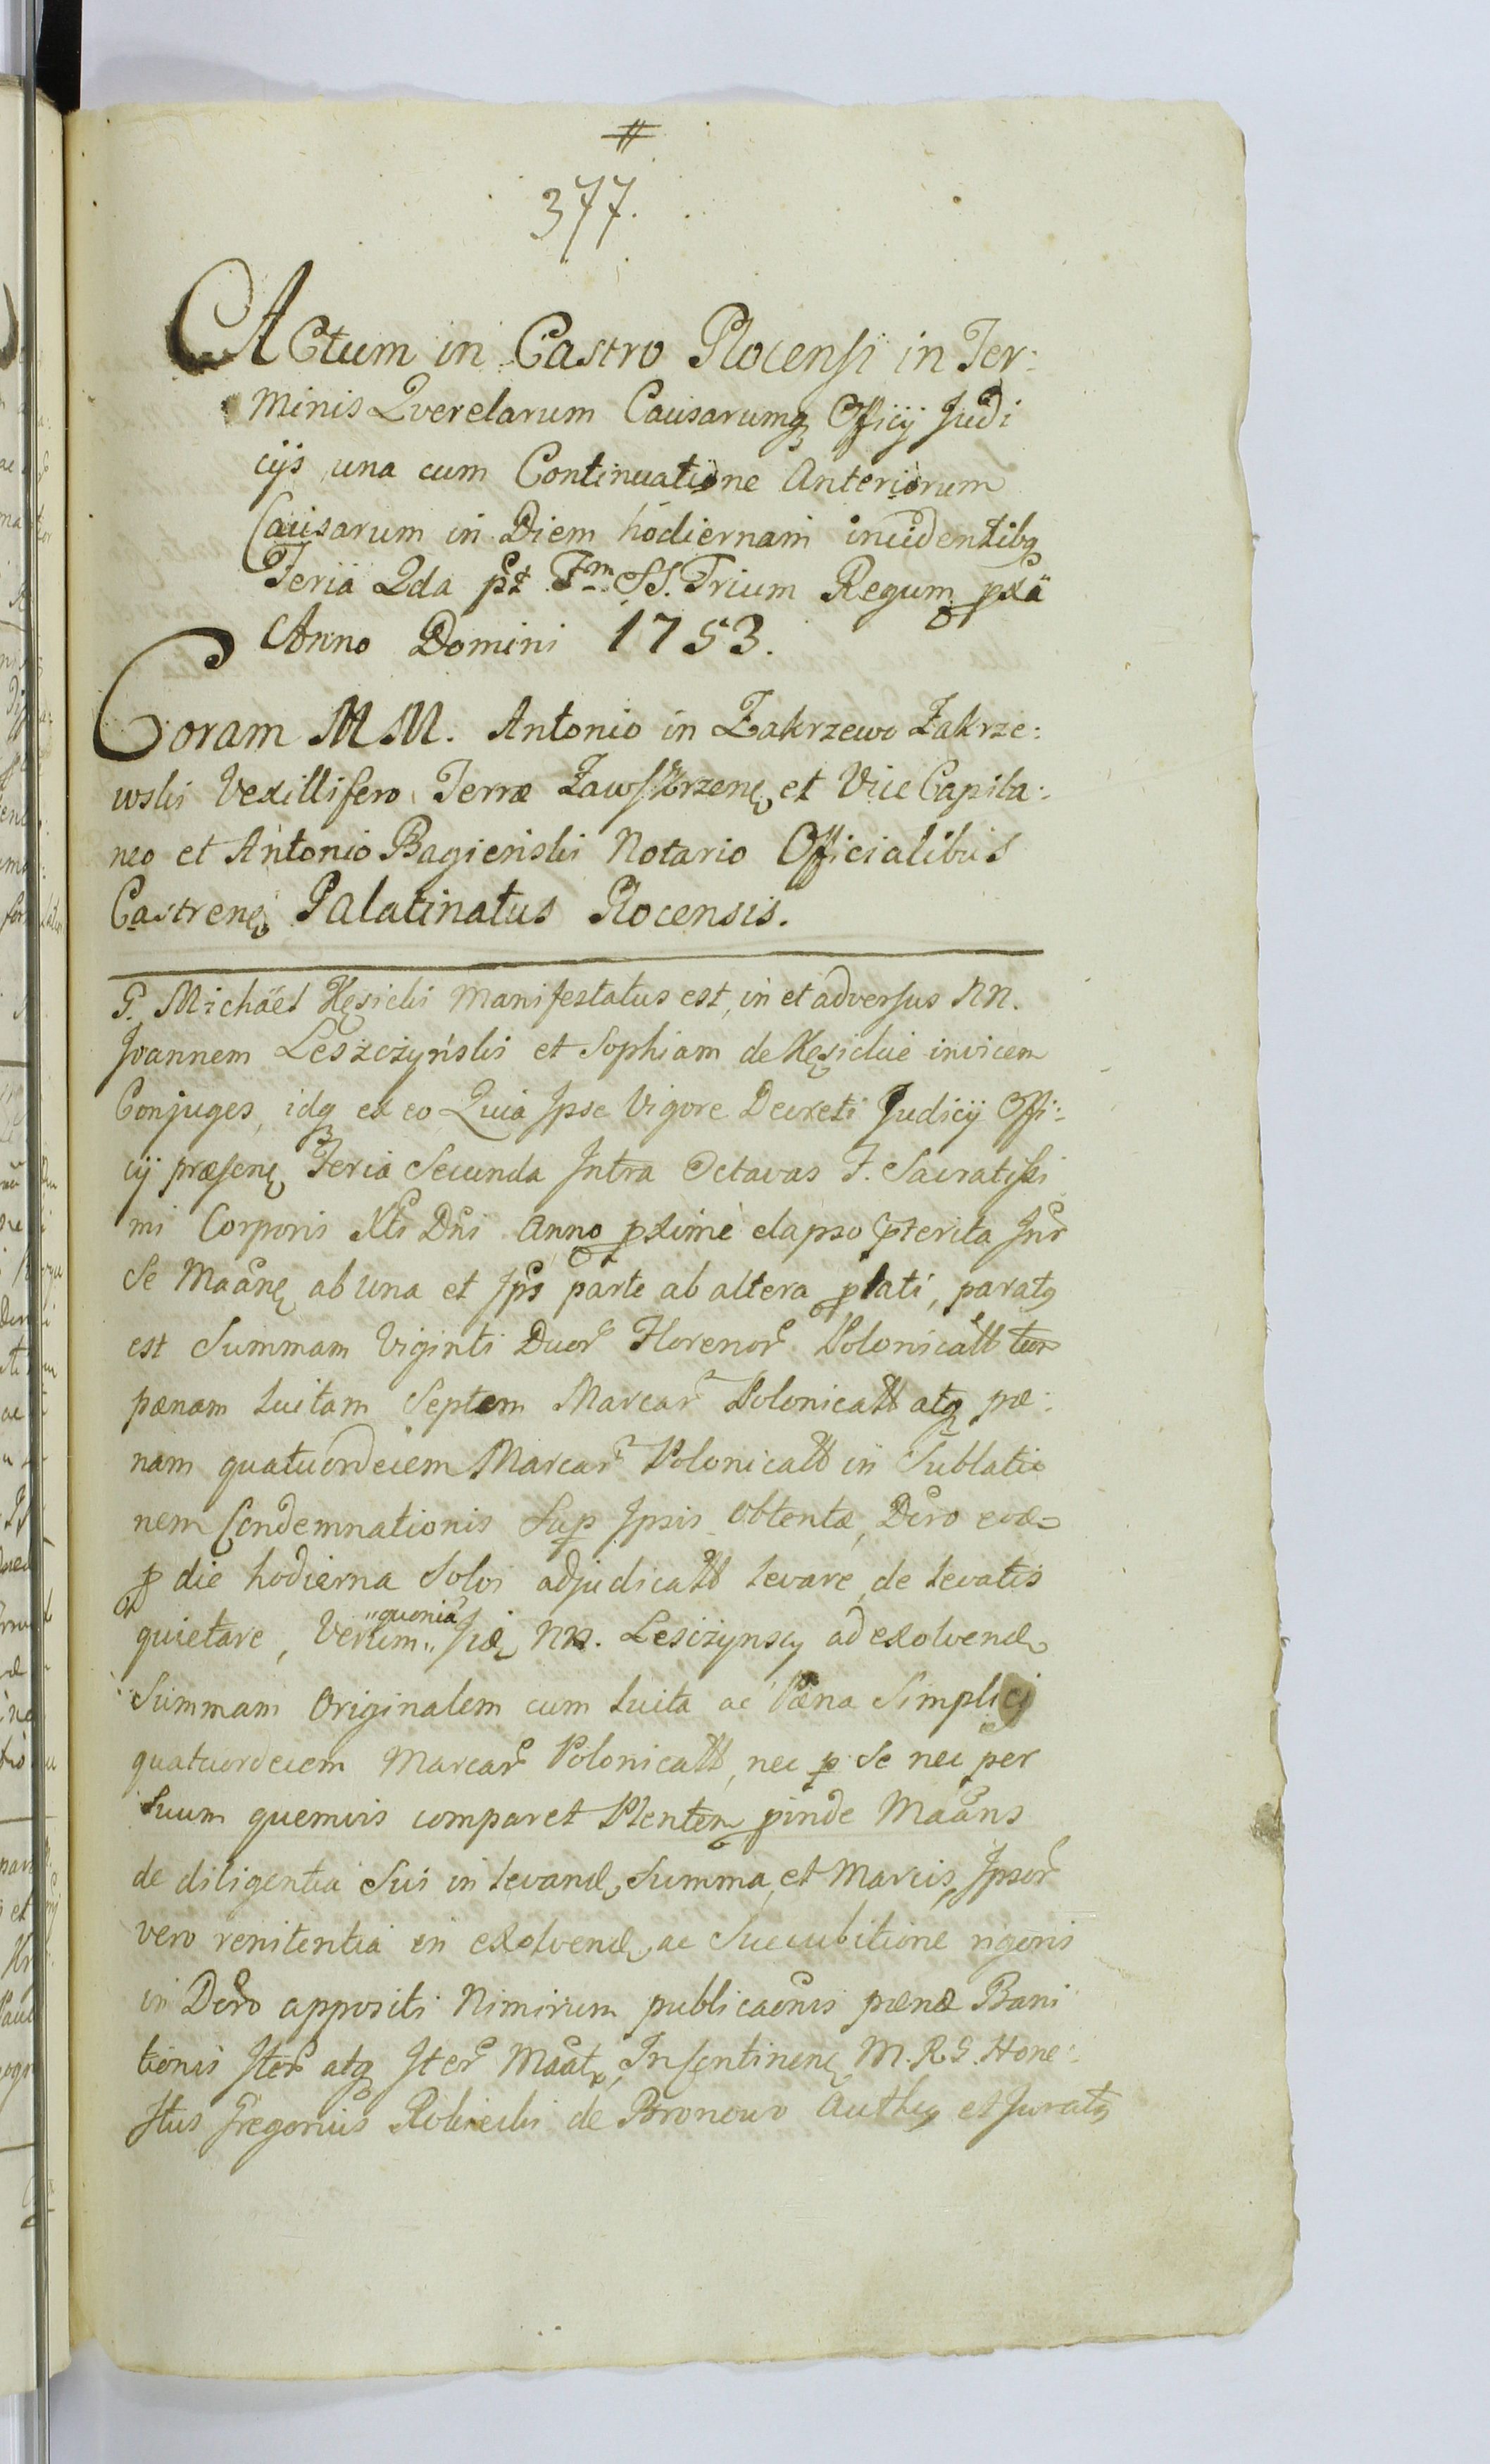 #
377.
Actum in Castro Plocensi in Ter:
minis Qverelarum Causarumq Officij Judi
cijs una cum Continuatione Anteriorum
Causarum in Diem hodiernam incidentibq
Feria 2da pt Fm SS. Trium Regum pxa
Anno Domini 1753.
Coram MM. Antonio in Zakrzewo Zakrze:
wski Vexillifero Terræ Zawskrzenę et Vice Capita:
neo et Antonio Bagieński Notario Officialibus
Castrenę Palatinatus Plocensis.
G. Michäel Kęsicki Manifestatus est, in et adversus NN.
Joannem Leszczyński et Sophiam de Kęsickie invicem
Conjuges, idq ex eo Quia Ipse Vigore Decreti Judicij Offi:
cij præsenę Feria Secunda Intra Octavas F. Sacratissi
mi Corporis Xti Dni Anno pxime elapso pterita Intr
Se Maanę ab una et Ips parte ab altera plati, paratq
est Summam Viginti Duor Florenor Polonicall
pænam luitam Septem Marcar Polonicall atq pæ:
nam quatuordeciem Marcar Polonicall in Sublatio
nem Condemnationis Sup Ipsis obtentæ, Dcro
p die hodierna Solvi adjudicall levare, de levatis
quietare, Verum "quonia" NN. Lesczynscy ad exolvend
Summam Originalem cum luita ac Pæna Simplici
quatuordeciem Marcar Polonicall, nec p Se nec per
Suum quemvis comparet Plentem pinde Maans
de diligentia Sui in levand Summa et Marcis, Ipsor
vero renitentia in exolvend ac Succubitione rigoris
in Dcro appositi Nimirum publicaonis pænæ Bani
tionis Iter atq Iter Maat, In sentinenę M. R. G. Hone:
stus Gregorius Robiecki de Bronowo Authq et Juratq